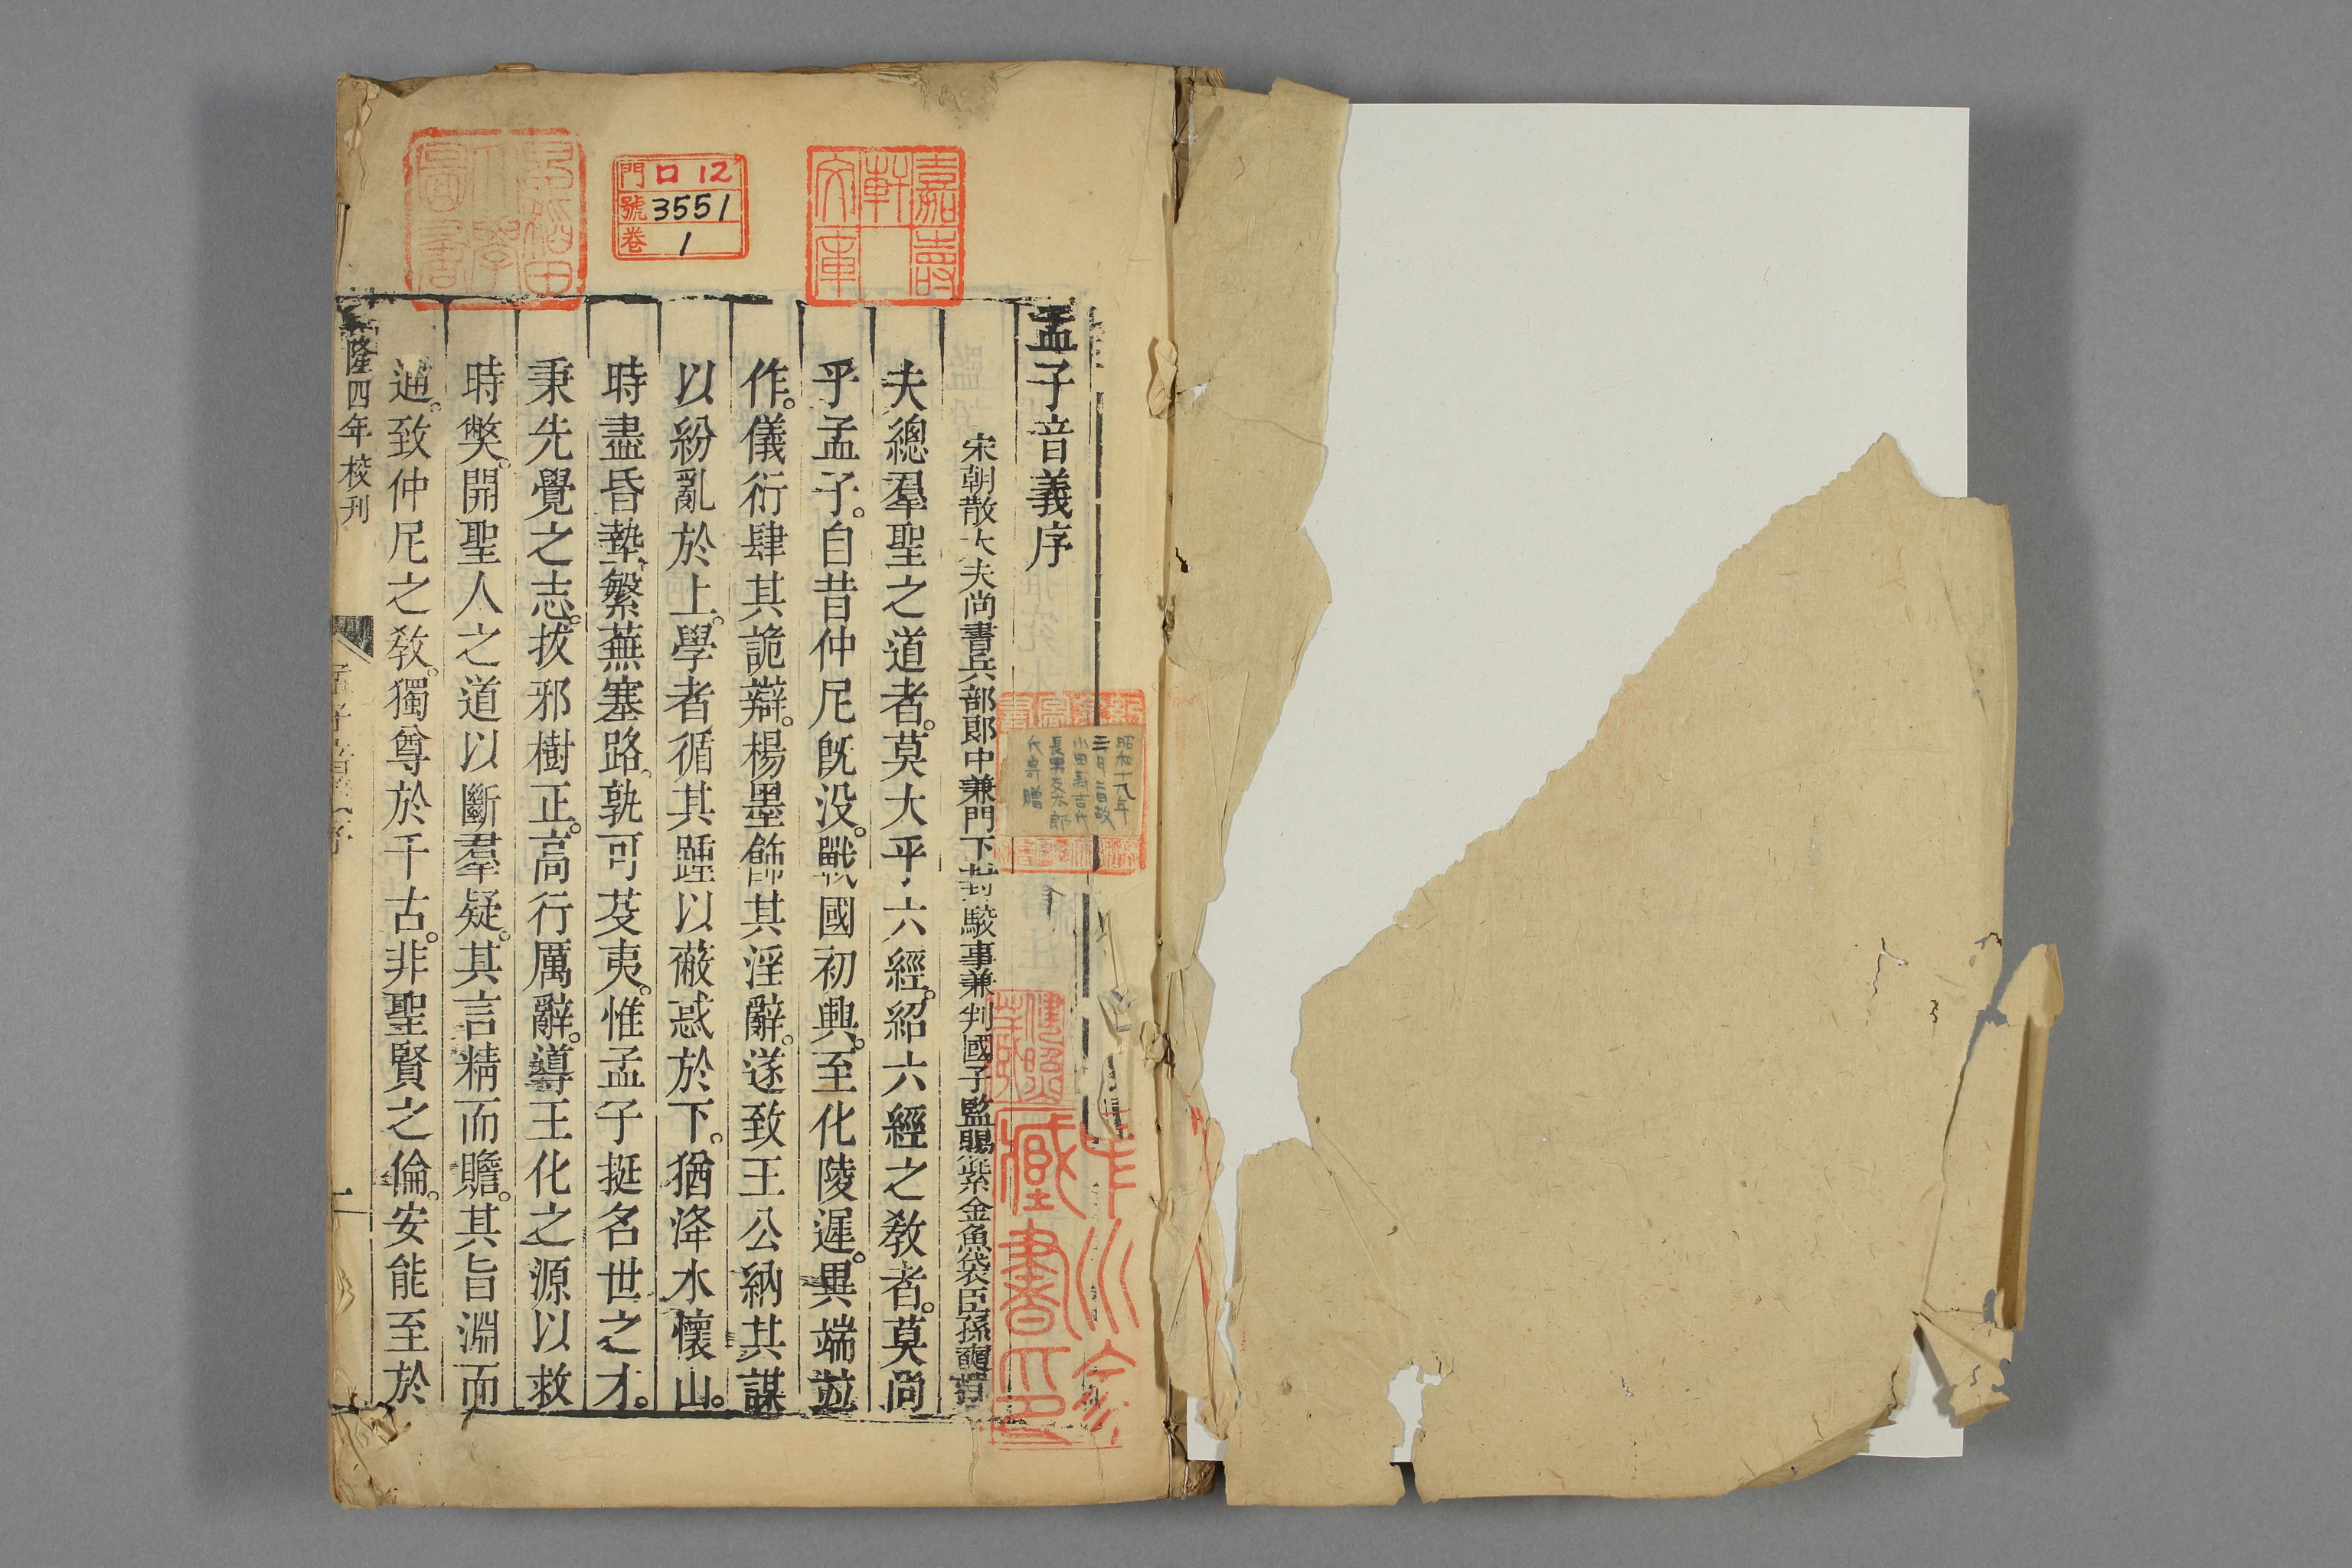 孟子音義序
宋朝散大夫尚書兵部郎中兼門下封駁事兼判國子監賜紫金魚袋臣孫奭
夫總羣聖之道者。莫大乎六經。紹六經之教者。莫尚
乎孟子。自昔仲尼旣没。戰國初興。至化陵遲。異端並
作。儀衍肆其詭辯。楊墨飾其淫辭。遂致王公納其謀
以紛亂於上。學者循其踵以蔽惑於下。猶洚水懷山。
時盡昏墊。繁蕪塞路。孰可芟夷。惟孟子挺名世之才。
秉先覺之志。拔邪樹正。高行厲辭。導王化之源以救
時獘。開聖人之道以斷羣疑。其言精而贍。其旨淵而
通。致仲尼之教。獨尊於千古。非聖賢之倫。安能至於
隆四年校刊
嘉壽軒文庫
門 口 12
號 3551
卷 1
早稻田大學圖書
昭和十九年
三月二日故
小田壽吉氏
長男友太郎
氏寄贈
藏書印